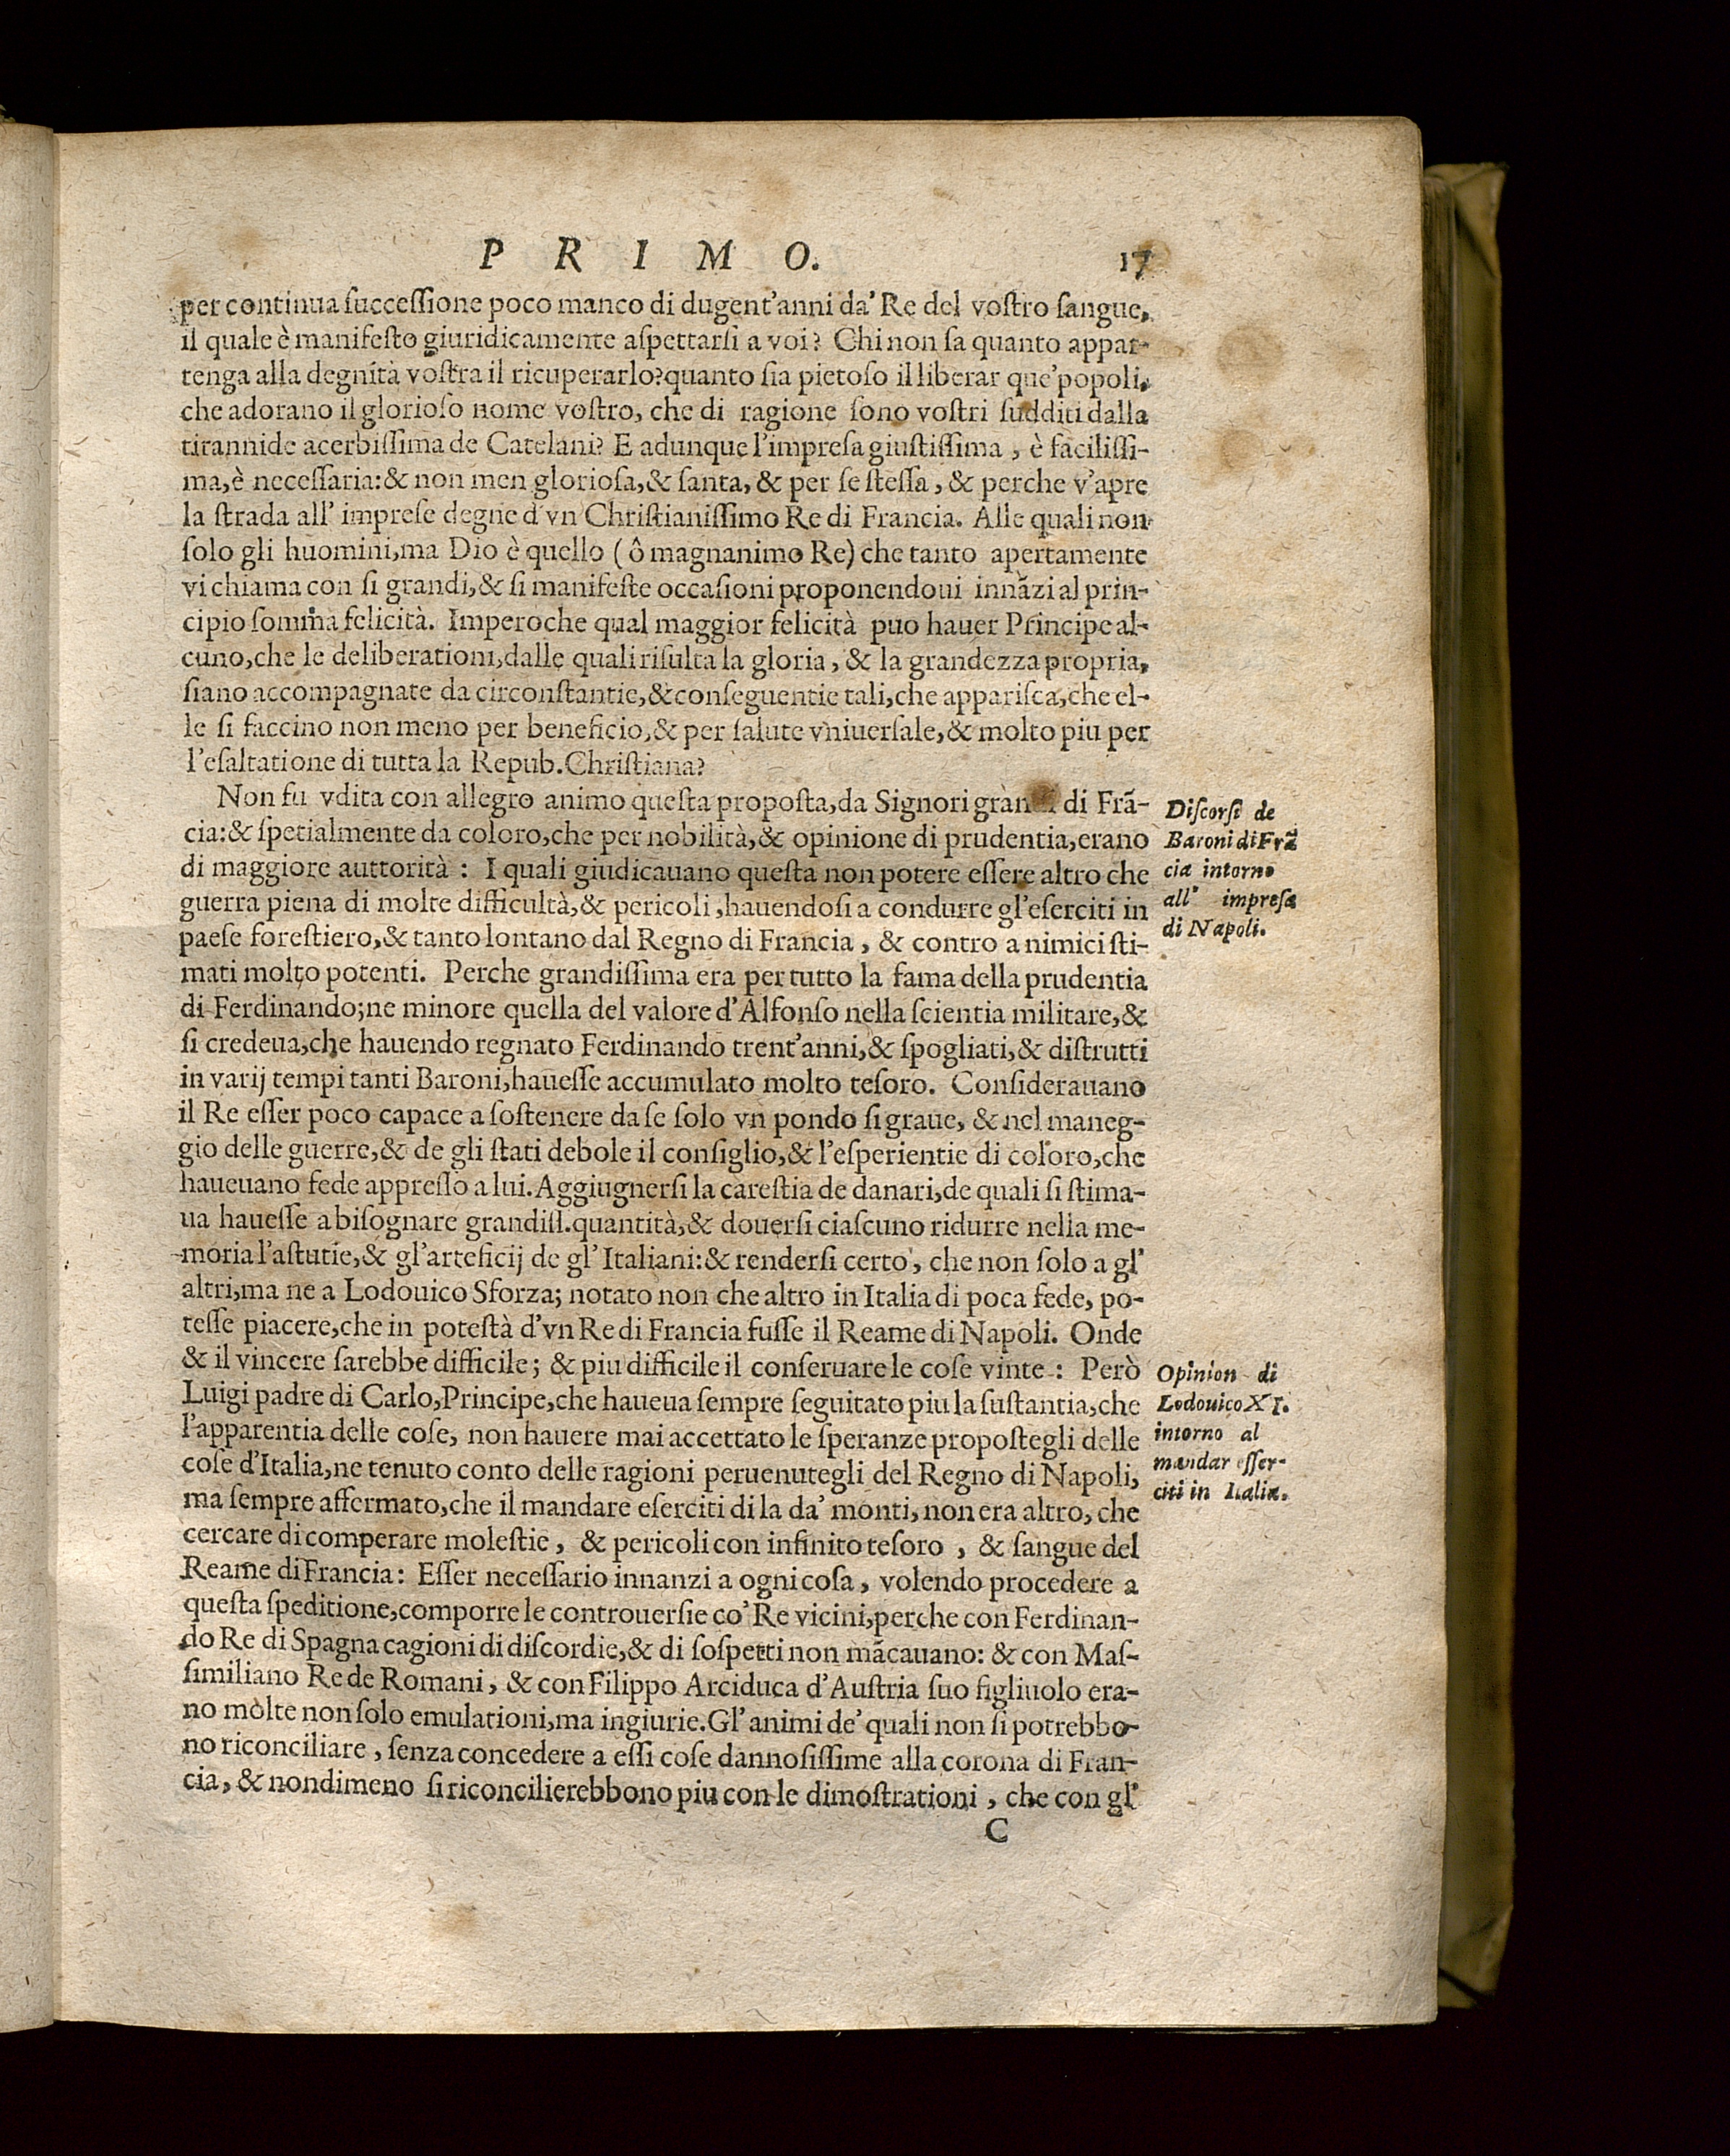 PRIMO. 17
per continua ſucceſſione poco manco di dugent'anni da' Re del voſtro ſangue,
il quale è manifeſto giuridicamente aſpettarſi a voi? Chi non ſa quanto appar-
tenga alla degnità voſtra il ricuperarlo? quanto ſia pietoſo il liberar que' popoli,
che adorano il glorioſo nome voſtro, che di ragione ſono voſtri ſudditi dalla
tirannide acerbiſſima de Catelani? E adunque l'impreſa giuſtiſſima, è faciliſſi-
ma, è neceſſaria: & non men glorioſa, & ſanta, & per ſe ſteſſa, & perche v'apre
la ſtrada all' impreſe degne d'vn Chriſtianiſſimo Re di Francia. Alle quali non
ſolo gli huomini, ma Dio è quello (ô magnanimo Re) che tanto apertamente
vi chiama con ſi grandi, & ſi manifeſte occaſioni proponendoui innãzi al prin-
cipio ſomma felicità. Imperoche qual maggior felicità puo hauer Principe al-
cuno, che le deliberationi, dalle quali riſulta la gloria, & la grandezza propria,
ſiano accompagnate da circonſtantie, & conſeguentie tali, che appariſca, che el-
le ſi faccino non meno per beneficio, & per ſalute vniuerſale, & molto piu per
l'eſaltatione di tutta la Repub. Chriſtiana?
Non fu vdita con allegro animo queſta propoſta, da Signori di Frã-
cia: & ſpetialmente da coloro, che per nobilità, & opinione di prudentia, erano
di maggiore auttorità: I quali giudicauano queſta non potere eſſere altro che
guerra piena di molte difficultà, & pericoli, hauendoſi a condurre gl'eſerciti in
paeſe foreſtiero, & tanto lontano dal Regno di Francia, & contro a nimici ſti-
mati molto potenti. Perche grandiſſima era per tutto la fama della prudentia
di Ferdinando; ne minore quella del valore d'Alfonſo nella ſcientia militare, &
ſi credeua, che hauendo regnato Ferdinando trent'anni, & ſpogliati, & diſtrutti
in varij tempi tanti Baroni, haueſſe accumulato molto teſoro. Conſiderauano
il Re eſſer poco capace a ſoſtenere da ſe ſolo vn pondo ſi graue, & nel maneg-
gio delle guerre, & de gli ſtati debole il conſiglio, & l'eſperientie di coloro, che
haueuano fede appreſſo a lui. Aggiugnerſi la careſtia de danari, de quali ſi ſtima-
ua haueſſe abiſognare grandiſſ. quantità, & douerſi ciaſcuno ridurre nella me-
moria l'aſtutie, & gl'arteficij de gl' Italiani: & renderſi certo, che non ſolo a gl'
altri, ma ne a Lodouico Sforza; notato non che altro in Italia di poca fede, po-
teſſe piacere, che in poteſtà d'vn Re di Francia fuſſe il Reame di Napoli. Onde
& il vincere ſarebbe difficile; & piu difficile il conſeruare le coſe vinte: Però
Luigi padre di Carlo, Principe, che haueua ſempre ſeguitato piu la ſuſtantia, che
l'apparentia delle coſe, non hauere mai accettato le ſperanze propoſtegli delle
coſe d'Italia, ne tenuto conto delle ragioni peruenutegli del Regno di Napoli,
ma ſempre affermato, che il mandare eſerciti di la da' monti, non era altro, che
cercare di comperare moleſtie, & pericoli con infinito teſoro, & ſangue del
Reame di Francia: Eſſer neceſſario innanzi a ogni coſa, volendo procedere a
queſta ſpeditione, comporre le controuerſie co' Re vicini, perche con Ferdinan-
do Re di Spagna cagioni di diſcordie, & di ſoſpetti non mãcauano: & con Maſ-
ſimiliano Re de Romani, & con Filippo Arciduca d'Auſtria ſuo figliuolo era-
no molte non ſolo emulationi, ma ingiurie. Gl' animi de' quali non ſi potrebbo-
no riconciliare, ſenza concedere a eſſi coſe dannoſiſſime alla corona di Fran-
cia, & nondimeno ſi riconcilierebbono piu con le dimoſtrationi, che con gl'
C
Diſcorſi de
Baroni di Frã
cia intorno
all' impreſa
di Napoli.
Opinion di
Lodouico XI.
intorno al
mandar eſſer-
citi in Italia.